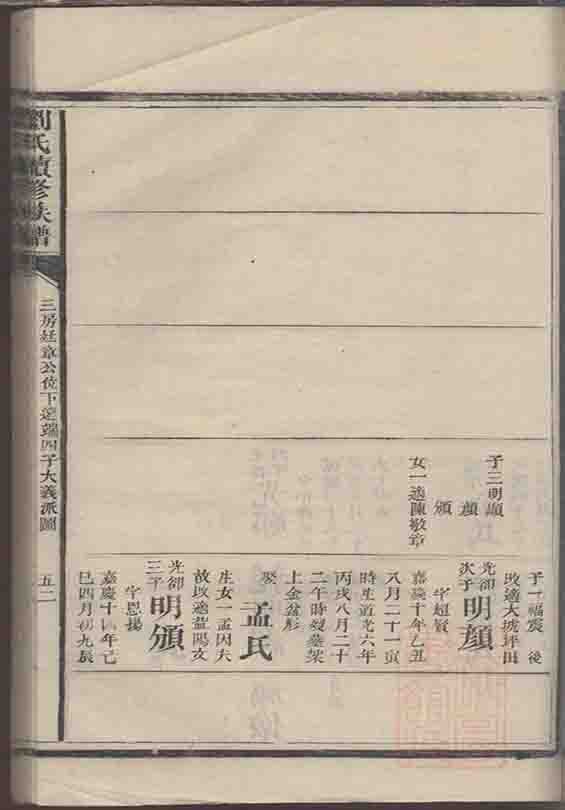 劉氏續修族譜
三房廷章公位下達端四子大義派圖
五二
子三明顯
顏
頒
女一適陳敬章
子一福震 後
改適大坡坪田
光卿次子明顏
字超賢
嘉慶十年乙丑
八月二十一寅
時生道光六年
丙戌八月二十
二午時歿墓架
上金盆形
娶孟氏
生女一孟因夫
故改適藍陽文
光卿三子明頒
字恩揚
嘉慶十四年己
巳四月初九辰